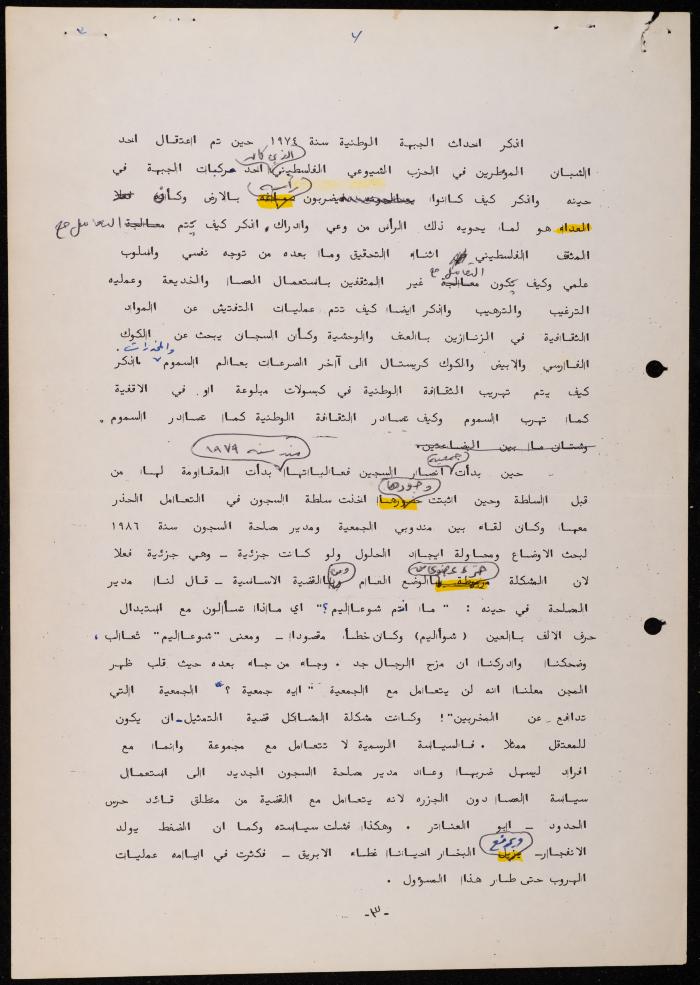 ٧
اذكر احداث الجبهة الوطنية سنة ١٩٧٤ حين تم اعتقال احد
الذي كان
الشبان المؤطرين في الحزب الشيوعي الفلسطيني احد مركبات الجبهة في
رأسه
حينه واذكر كيف كانوا يضربون بالارض وكأن فعلا
العداء هو لما يحويه ذلك الرأس من وعي وادراك، اذكر كيف يتم معالجة التعامل مع
المثقف الفلسطيني اثناء التحقيق وما بعده من توجه نفسي واسلوب
التعامل مع
علمي وكيف يكون معالجة غير المثقفين باستعمال العصا والخديعة وعمليه
الترغيب والترهيب واذكر ايضا كيف تتم عمليات التفتيش عن المواد
الثقافية في الزنازين بالعنف والوحشية وكأن السجان يبحث عن الكوك
والمخدرات.
الفارسي والابيض والكوك كريستال الى آخر الصرعات بعالم السموم، اذكر
كيف يتم تهريب الثقافة الوطنية في كبسولات مبلوعة او في الاقفية
كما تهرب السموم وكيف تصادر الثقافة الوطنية كما تصادر السموم .
وشتان ما بين البضاعتين.
منذ سنة ١٩٧٩
جمعية
حين بدأت انصار السجين فعالياتها بدأت المقاومة لها من
وجودها
قبل السلطة وحين اثبتت حضورها اخذت سلطة السجون في التعامل الحذر
معها وكان لقاء بين مندوبي الجمعية ومدير مصلحة السجون سنة ١٩٨٦
لبحث الاوضاع ومحاولة ايجاد الحلول ولو كانت جزئية - وهي جزئية فعلا
جزء عضوي من
ومن
لان المشكلة مربوطة بالوضع العام وبالقضية الاساسية - قال لنا مدير
المصلحة في حينه : " ما انتم شوعاليم؟" اي ماذا تسألون مع استبدال
حرف الالف بالعين (شوأليم) وكان خطأ، مقصودا - ومعنى "شوعاليم" ثعالب،
وضحكنا وادركنا ان مزح الرجال جد . وجاء من جاء بعده حيث قلب ظهر
المجن معلنا انه لن يتعامل مع الجمعية "ايه جمعية ؟" الجمعية التي
تدافع عن المخربين"! وكانت مشكلة المشاكل قضية التمثيل-ان يكون
للمعتقل ممثلا . فالسياسة الرسمية لا تتعامل مع مجموعة وانما مع
افراد ليسهل ضربها وعاد مدير مصلحة السجون الجديد الى استعمال
سياسة العصا دون الجزره لانه يتعامل مع القضية من منطلق قائد حرس
الحدود - ابو العناتر . وهكذا فشلت سياسته وكما ان الضغط يولد
ويرفع
الانفجار- يزيل البخار احيانا غطاء الابريق - فكثرت في ايامه عمليات
الهروب حتى طار هذا المسؤول .
-٣-